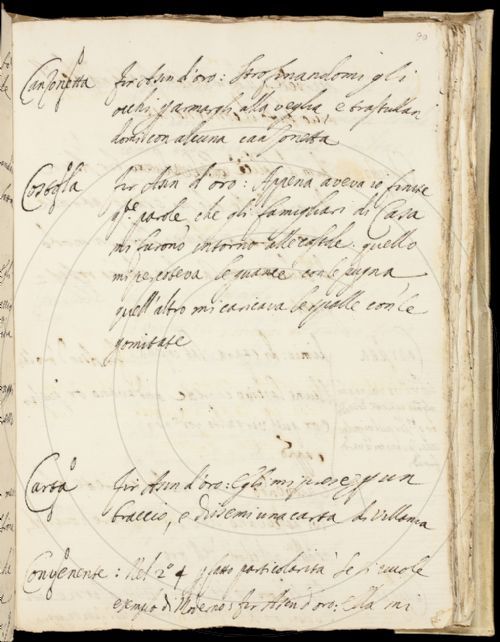 90
Canzonetta Fir. Asin d'oro: Strofinandomi gli
occhi p armargli alla veglia e trastullan
domi con alcuna canzonetta
Costola Fir. Asin d'oro: Appena aveva io finite
qste parole che gli famigliari di Casa
mi furono intorno alle costole. quello
mi percoteva le guance con le pugna
quell'altro mi caricava le spalle con le
gomitate
Carta Fir. Asin d'oro: Egli mi prese p un
braccio, e dissemi una carta di Villania
Convenente: Nel 2° 4 p atto particolarità se si vuole
esempio di Moderno: Fir. Asin d'oro: Ella mi